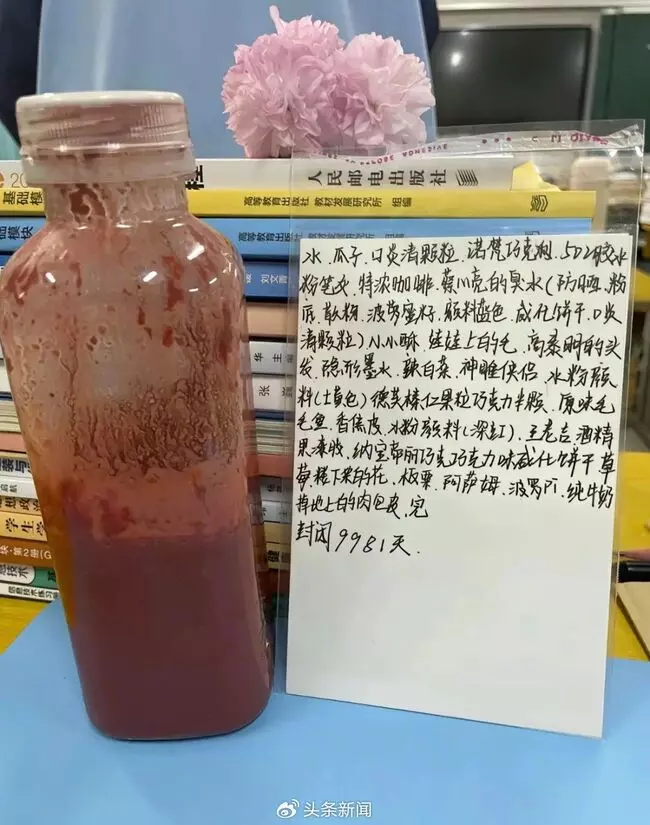 人民邮电出版社
高等教育出版社 教材发展研究所 组编
基础模
模块
刘文
华 主
张
水、瓜子、口炎清颗粒、诺梵巧克力、502胶水
粉笔灰、特浓咖啡、蔡川克的臭水(防晒、粉
底、散粉、波萝蜜籽、颜料蓝色、威化饼干、口炎
清颗粒)小小酥、娃娃上的毛、高泰明的头
发、隐形墨水、辣白菜、神雕侠侣、水粉颜
料(土黄色)德芙榛仁果粒巧克力半颗、原味毛
毛鱼、香蕉皮、水粉颜料(深红)、王老吉、酒精
果凍、纳宝帝丽巧克巧克力味威化饼干、草
莓、搓下来的花、板栗、阿萨姆、波罗、纯牛奶
掉地上的肉包皮、完
封闭9981天.
头条新闻